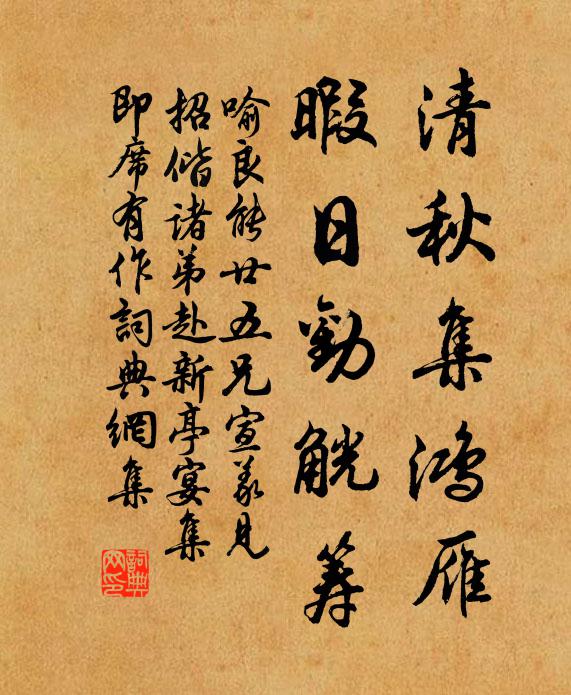 清秋集鴻雁
暇日勸觥籌
喻良能廿五兄宣義見
招偕諸弟赴新亭宴集
即席有作詞典網集
詞典网印